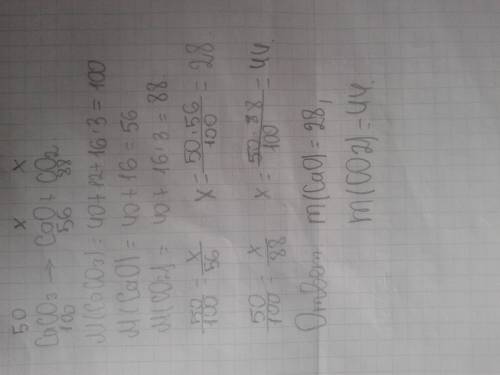 50 x x
CaCO3 → CaO + CO2
100 56 88
M(CaCO3) = 40+12+16·3 = 100
M(CaO) = 40+16 = 56
M(CO2) = 40+16·3 = 88
50/100 = x/56 x = 50·56/100 = 28
50/100 = x/88 x = 50·88/100 = 44.
Ответ m(CaO) = 28,
m(CO2) = 44.